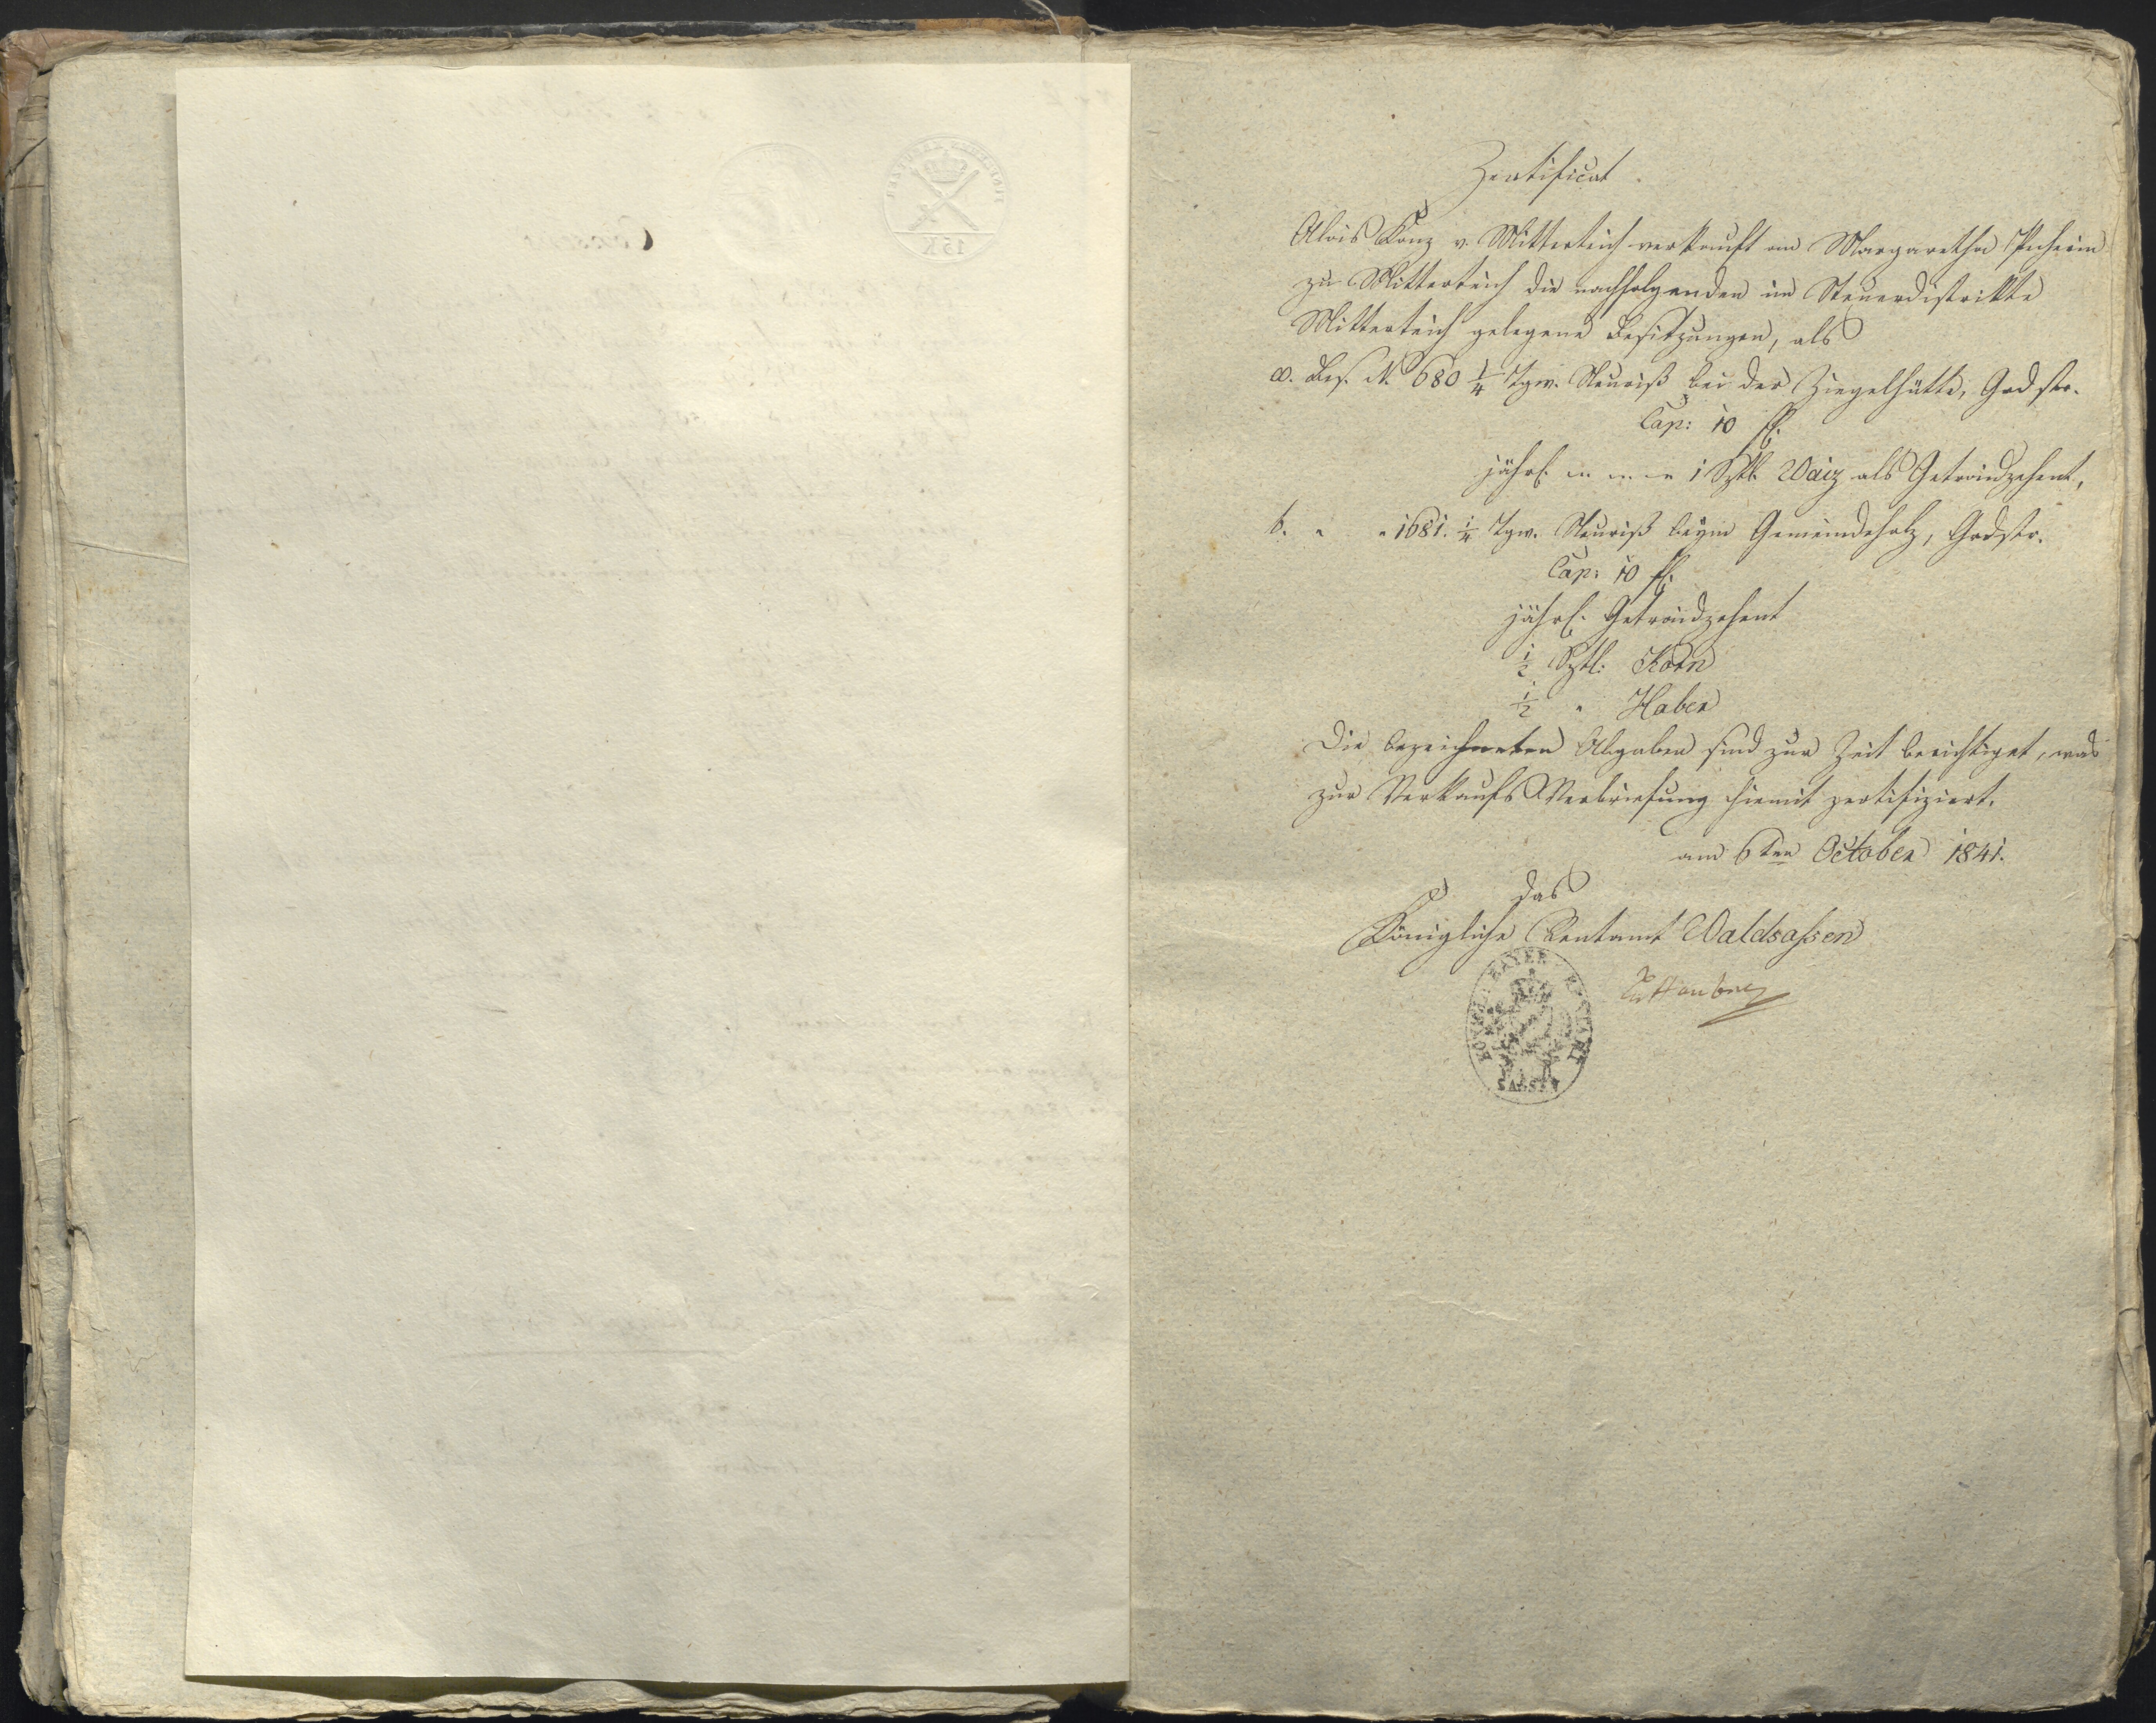 Zertificat.
Alois Konz v. Mitterteich verkauft an Margaretha
zu Mitterteich die nachfolgenden im Steuerdistrikte
Mitterteich gelegene Besitzungen, als
a. Bes. N. 680 1/4 Tgw. Neuriß bei der Ziegelhütte, Grdstr.
Cap: 10 fl.
jährl. 1 Sztl. Waiz als Getraidzehent,
b. " " 1681. 1/4 Tgw. Neuriß beym Gemeindeholz, Grdstr.
Cap: 10 fl.
jährl. Getraidzehent
1/2 Sztl. Korn
1/2 " Haber
Die bezeichneten Abgaben sind zur Zeit berichtiget, was
zur Verkaufs Verbriefung hiemit zertifiziert.
am 6ten October 1841.
das
Königliche Rentamt Waldsassen
15 K